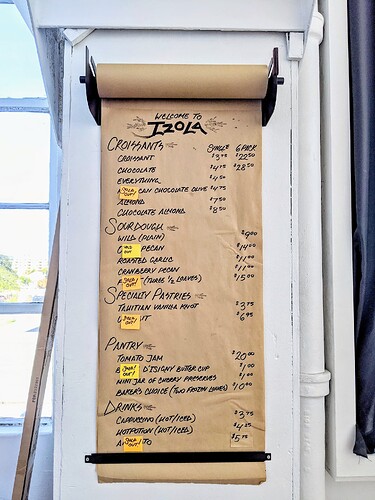 WELCOME TO
IZOLA
CROISSANTS SINGLE 6 PACK
CROISSANT $3.75 $22.50
CHOCOLATE $4.75 $28.50
EVERYTHING $4.50
SOLD OUT! CAN CHOCOLATE OLIVE $4.75
ALMOND $7.50
CHOCOLATE ALMOND $8.50
SOURDOUGH
WILD (PLAIN) $9.00
SOLD OUT! PECAN $14.00
ROASTED GARLIC $11.00
CRANBERRY PECAN $11.00
SOLD OUT! (THREE 1/2 LOAVES) $15.00
SPECIALTY PASTRIES
TAHITIAN VANILLA KNOT $3.75
SOLD OUT! IT $6.95
PANTRY
TOMATO JAM $20.00
SOLD OUT! D'ISIGNY BUTTER CUP $1.00
MINI JAR OF CHERRY PRESERVES $1.00
BAKER'S CHOICE (TWO FROZEN LOAVES) $10.00
DRINKS
CAPPUCCINO (HOT/ICED) $3.75
HOTPOTION (HOT/ICED) $4.25
SOLD OUT! TO $5.75